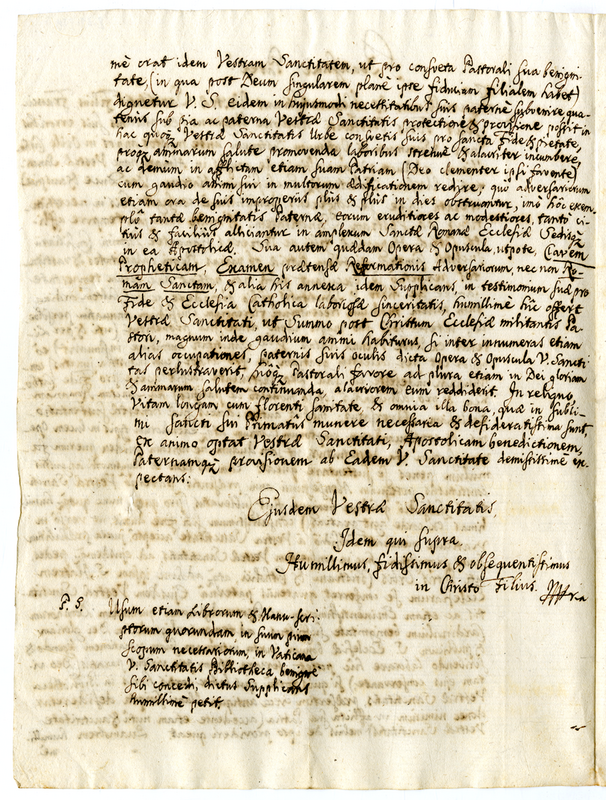 mè orat idem Vestram Sanctitatem, ut pro consveta Pastorali sua benigni-
tate, (in qua post Deum singularem planè ipse fiduciam filialem habet)
dignetur V. S. eidem in hujusmodi necessitatibus suis paternè subvenire, qua-
tenus sub tàm ac paterna Vestræ Sanctitatis protectione & provisione possit in
hac quoq; Vestræ Sanctitatis Urbe consvetis suis pro sancta Fide & pietate,
proq; animarum salute promovenda laboribus strenuè & alacriter incumbere,
ac demum in afflictam etiam suam Patriam (Deo clementer ipsi favente)
cum gaudio animi sui in multorum ædificationem redire, quò adversariorum
etiam ora de suis improperiis plùs & plùs in dies obstruantur, imò hoc exem-
plò tantæ benignitatis Paternæ, eorum eruditiores ac modestiores, tantò ci-
tiùs & faciliùs alliciantur in amplexum Sanctæ Romanæ Ecclesiæ Sedisq;
in ea Apostolicæ. Sua autem quædam Opera & Opuscula, utpote, Clavem
Propheticam, Examen prætensæ Reformationis Adversariorum, nec non Ro-
mam Sanctam, & alia his annexa idem Supplicans, in testimonium suæ pro
Fide & Ecclesia Catholica laboriosæ sinceritatis, humillimè hìc offert
Vestræ Sanctitati, ut Summo post Christum Ecclesiæ militantis Pa-
stori, magnum inde gaudium animi habiturus, si inter innumeras etiam
alias occupationes, paternis suis oculis dicta Opera & Opuscula V. Sancti-
tas perlustraverit, suoq; Pastorali favore ad plura etiam in Dei gloriam
& animarum salutem continuanda, alacriorem eum reddiderit. In reliquo,
Vitam longam cum florenti sanitate & omnia illa bona, quæ in subli-
mi sancti sui Primatûs munere necessaria & desideratissima sunt,
ex animo optat Vestræ Sanctitati, Apostolicam benedictionem,
Paternamq; provisionem ab Eadem V. Sanctitate demississimè ex-
pectans:
Ejusdem Vestræ Sanctitatis,
Idem qui supra,
Humillimus, fidissimus & obsequentissimus
in Christo Filius.
P. S. Usum etiam Librorum & Manu-scri-
ptorum quorundam in suum pium
scopum necessariorum, in Vaticana
V. Sanctitatis Bibliotheca benignè
sibi concedi, dictus Supplicans
humillimè petit.